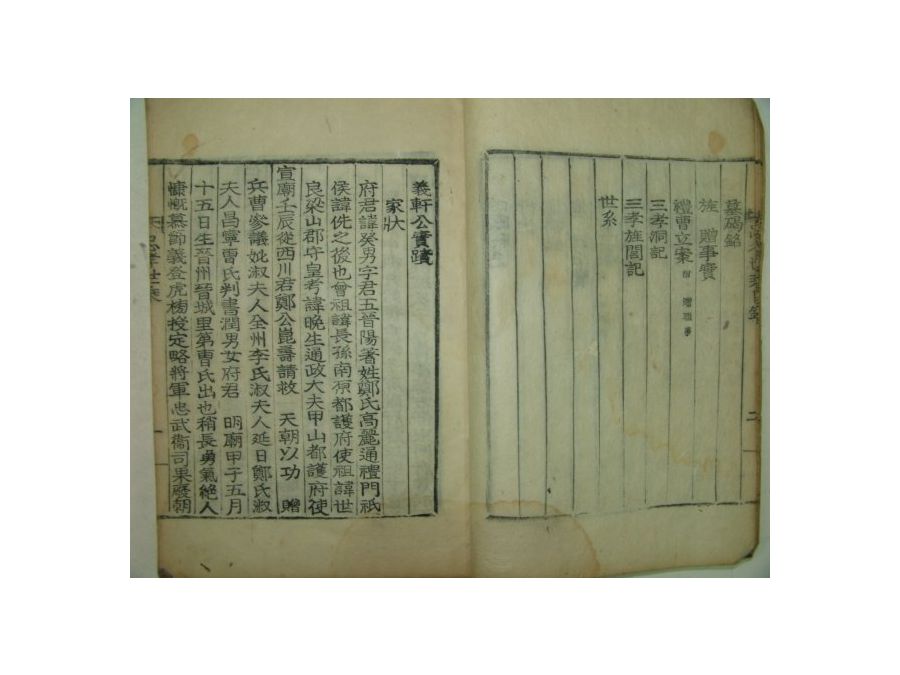 墓碣銘
旌 贈事實
禮曹立案
三孝洞記
三孝旌閭記
世系
二
義軒公實蹟
家狀
府君諱癸男字君五晉陽著姓鄭氏高麗通禮門祗
侯諱侁之後也曾祖諱長孫南原都護府使祖諱世
良梁山郡守皇考諱晩生通政大夫甲山都護府使
宣廟壬辰從西川君鄭公崑壽請救 天朝以功 贈
兵曹參議妣淑夫人全州李氏淑夫人延日鄭氏淑
夫人昌寧曺氏判書潤男女府君 明廟甲子五月
十五日生晉州晉城里第曺氏出也稍長勇氣絶人
慷慨慕節義登虎榜授定略將軍忠武衛司果廢朝
一